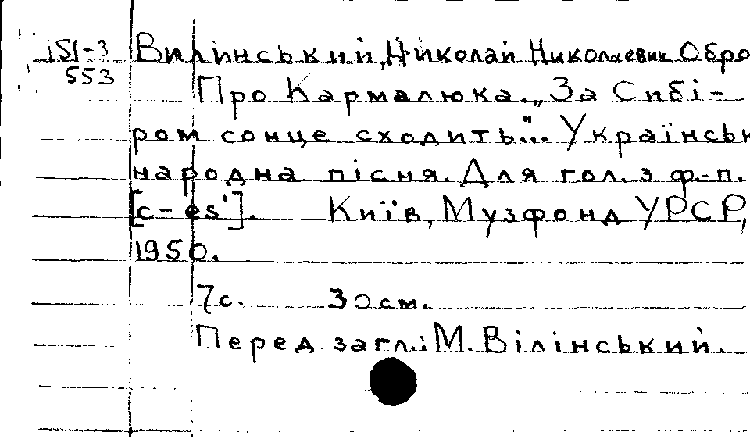 151-3 Вилінський, Николай Николаевич Обро
553
Про Кармалюка. „За Сибі-
ром сонце сходить"... Українськ
народна пісня. Для гол. з ф-п.
[c-es']. Київ, Музфонд УРСР,
1950.
7с. 30см.
Перед загл.: М. Вілінський.